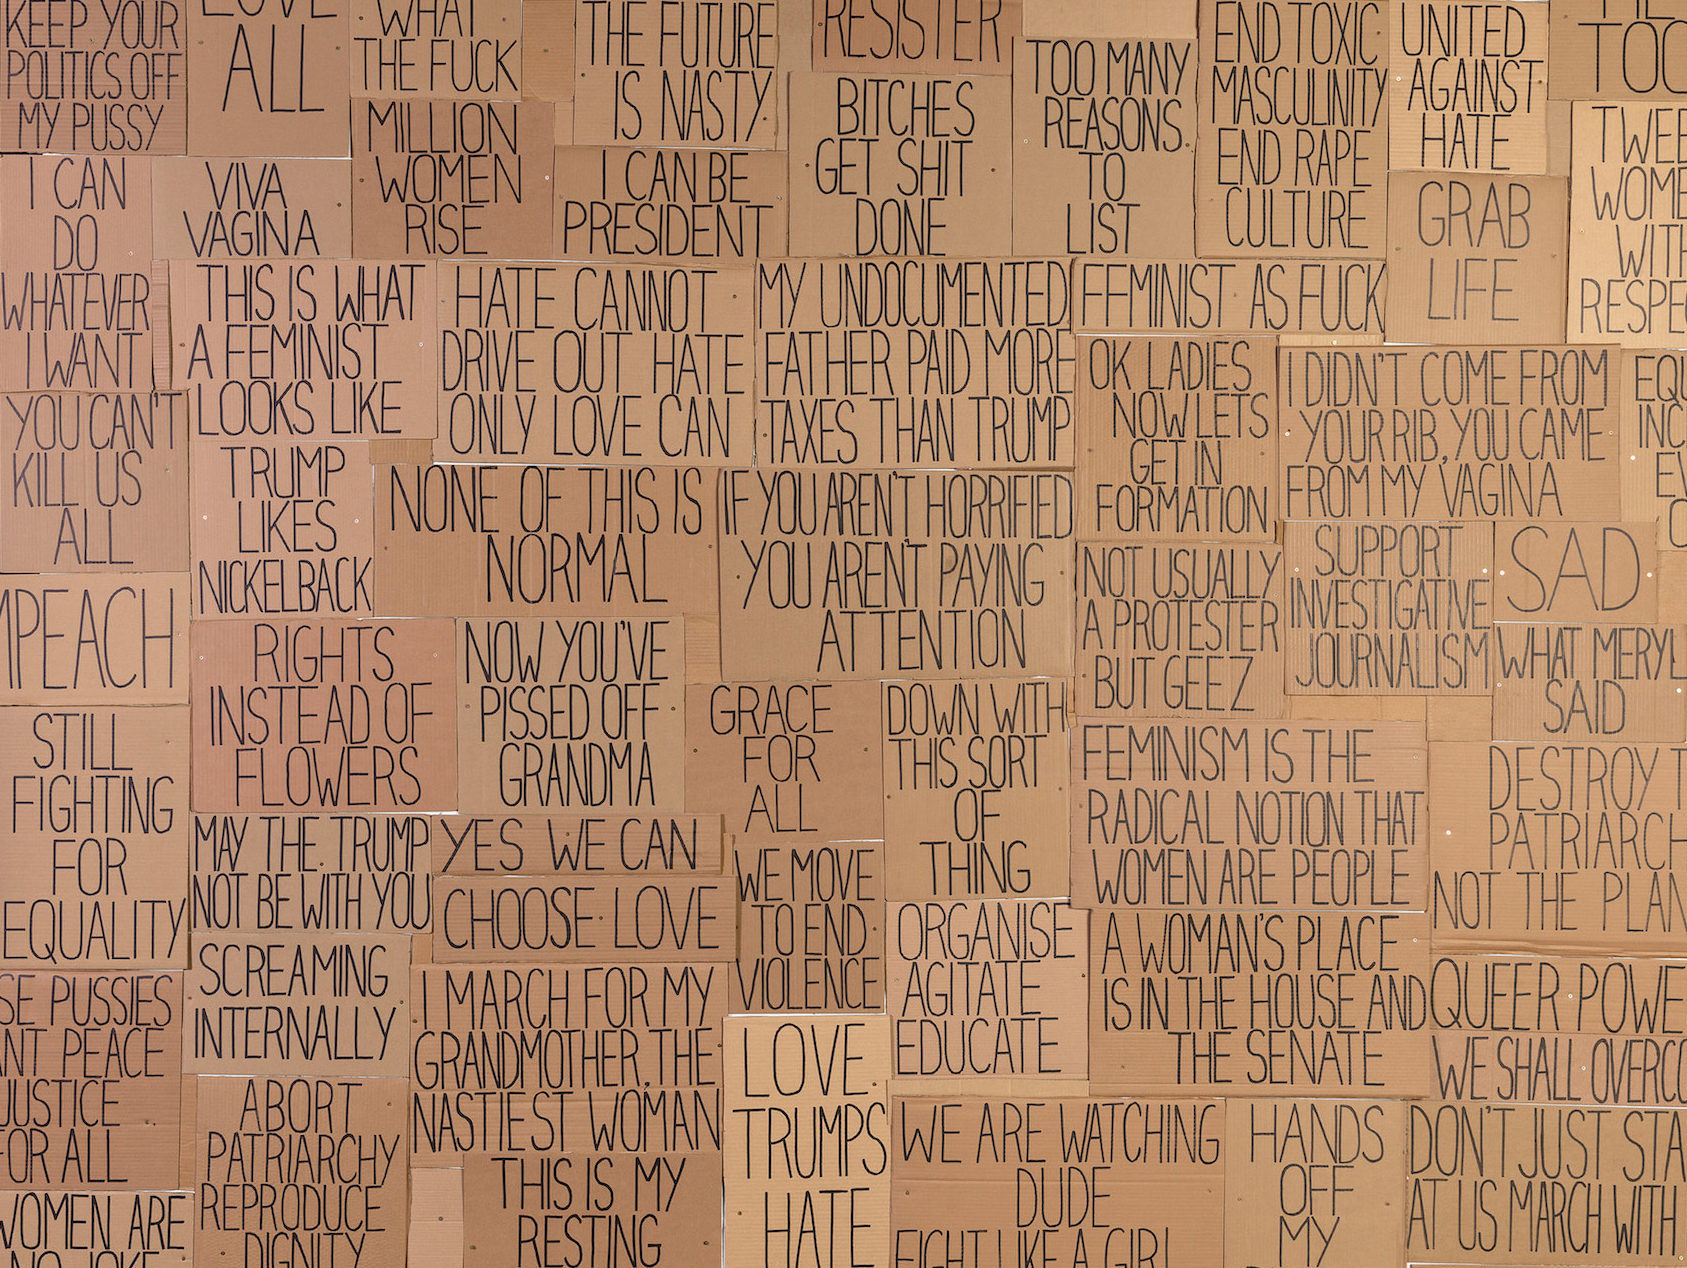 KEEP YOUR
POLITICS OFF
MY PUSSY
LOVE
ALL
WHAT
THE FUCK
THE FUTURE
IS NASTY
RESISTER
TOO MANY
REASONS
TO
LIST
END TOXIC
MASCULINITY
END RAPE
CULTURE
UNITED
AGAINST
HATE
TOO
MILLION
WOMEN
RISE
BITCHES
GET SHIT
DONE
I CAN BE
PRESIDENT
I CAN
DO
WHATEVER
I WANT
VIVA
VAGINA
GRAB
LIFE
WITH
THIS IS WHAT
A FEMINIST
LOOKS LIKE
HATE CANNOT
DRIVE OUT HATE
ONLY LOVE CAN
MY UNDOCUMENTED
FATHER PAID MORE
TAXES THAN TRUMP
FEMINIST AS FUCK
OK LADIES
NOW LETS
GET IN
FORMATION
I DIDN'T COME FROM
YOUR RIB, YOU CAME
FROM MY VAGINA
YOU CAN'T
KILL US
ALL
TRUMP
LIKES
NICKELBACK
NONE OF THIS IS
NORMAL
IF YOU AREN'T HORRIFIED
YOU AREN'T PAYING
ATTENTION
NOT USUALLY
A PROTESTER
BUT GEEZ
SUPPORT
INVESTIGATIVE
JOURNALISM
SAD
WHAT MERYL
SAID
MPEACH
RIGHTS
INSTEAD OF
FLOWERS
NOW YOU'VE
PISSED OFF
GRANDMA
GRACE
FOR
ALL
DOWN WITH
THIS SORT
OF
THING
FEMINISM IS THE
RADICAL NOTION THAT
WOMEN ARE PEOPLE
DESTROY T
PATRIARCH
NOT THE PLAN
STILL
FIGHTING
FOR
EQUALITY
MAY THE TRUMP
NOT BE WITH YOU
YES WE CAN
CHOOSE LOVE
WE MOVE
TO END
VIOLENCE
ORGANISE
AGITATE
EDUCATE
A WOMAN'S PLACE
IS IN THE HOUSE AND
THE SENATE
QUEER POWE
WE SHALL OVERCO
SE PUSSIES
ANT PEACE
JUSTICE
FOR ALL
SCREAMING
INTERNALLY
I MARCH FOR MY
GRANDMOTHER, THE
NASTIEST WOMAN
LOVE
TRUMPS
HATE
ABORT
PATRIARCHY
REPRODUCE
DIGNITY
THIS IS MY
RESTING
WE ARE WATCHING
DUDE
FIGHT LIKE A GIRL
HANDS
OFF
MY
DON'T JUST STA
AT US MARCH WITH
WOMEN ARE
NO JOKE